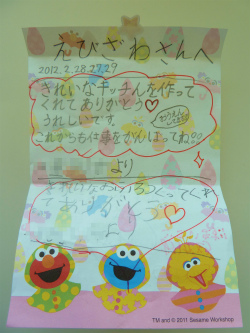 えびざわさんへ
2012.2.28.27.29
きれいなキッチんを作って
くれてありがとう♡
うれしいです。
これからも仕事をがんばってね!!
より
きれいなおふろをつくってくれ
てありがとう
より
TM and © 2011 Sesame Workshop